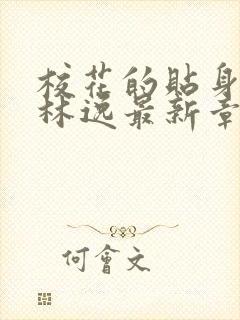 校花的貼身
林逸最新章
何會文